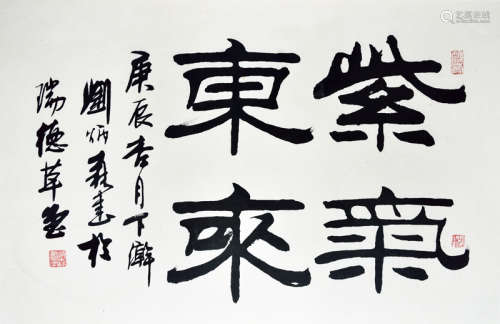 紫氣
東來
庚辰杏月下澣
劉炳森書於
瑞德草堂